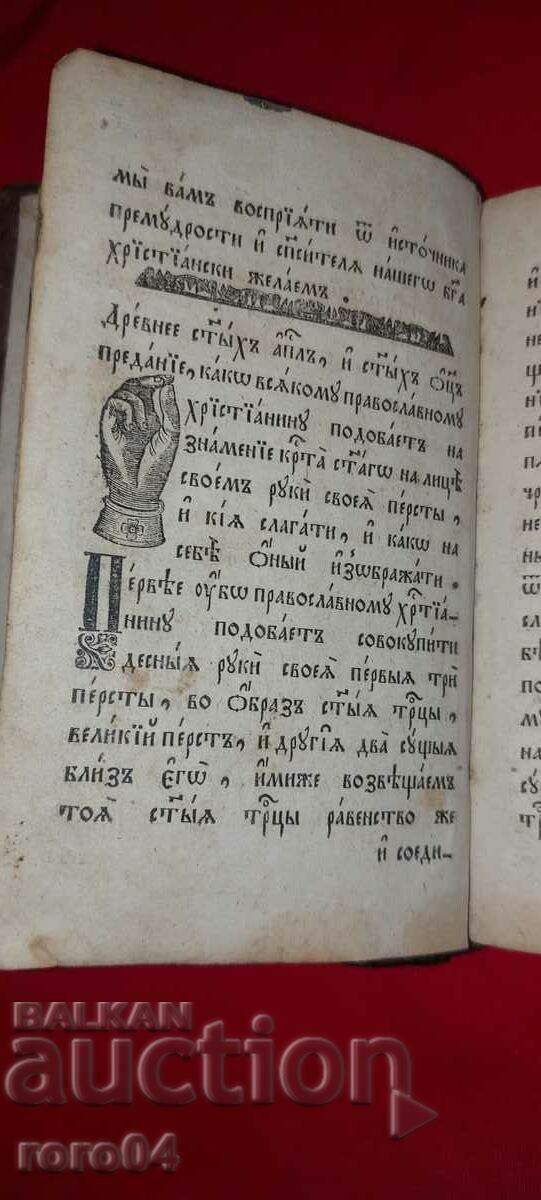 мы̀ ва́мъ воспрїѧ́ти ѿ и҆сто́чника
премꙋ́дрости и҆ сп҃си́телѧ на́шегѡ бг҃а
хрїстїа́нски жела́емъ .
Дре́внее ст҃ы́хъ а҆пⷭ҇лъ, и҆ ст҃ы́хъ ѻ҆ц҃ъ
преда́нїе, ка́кѡ всѧ́комꙋ правосла́вномꙋ
хрїстїа́нинꙋ подоба́етъ на
зна́менїе крⷭ҇та̀ ст҃а́гѡ на лицѣ̀
свое́мъ рꙋкѝ своеѧ̀ пе́рсты,
и҆ кі́ѧ слага́ти, и҆ ка́кѡ на
себѣ̀ ѻ҆́ный и҆з̾ѡбража́ти .
Пе́рвѣе ᲂу҆́бѡ правосла́вномꙋ хрⷭ҇тїа́-
нинꙋ подоба́етъ совокꙋпи́ти
десны́ѧ рꙋкѝ своеѧ̀ пе́рвыѧ трѝ
пе́рсты, во ѻ҆́бразъ ст҃ы́ѧ трⷪ҇цы,
вели́кїй пе́рстъ, и҆ дрꙋгі̑ѧ два̀ сꙋ́щыѧ
бли́зъ є҆гѡ̀, и҆́миже возвѣща́емъ
тоѧ̀ ст҃ы́ѧ трⷪ҇цы ра́венство же
и҆ соеди-
BALKAN
auction
roro04